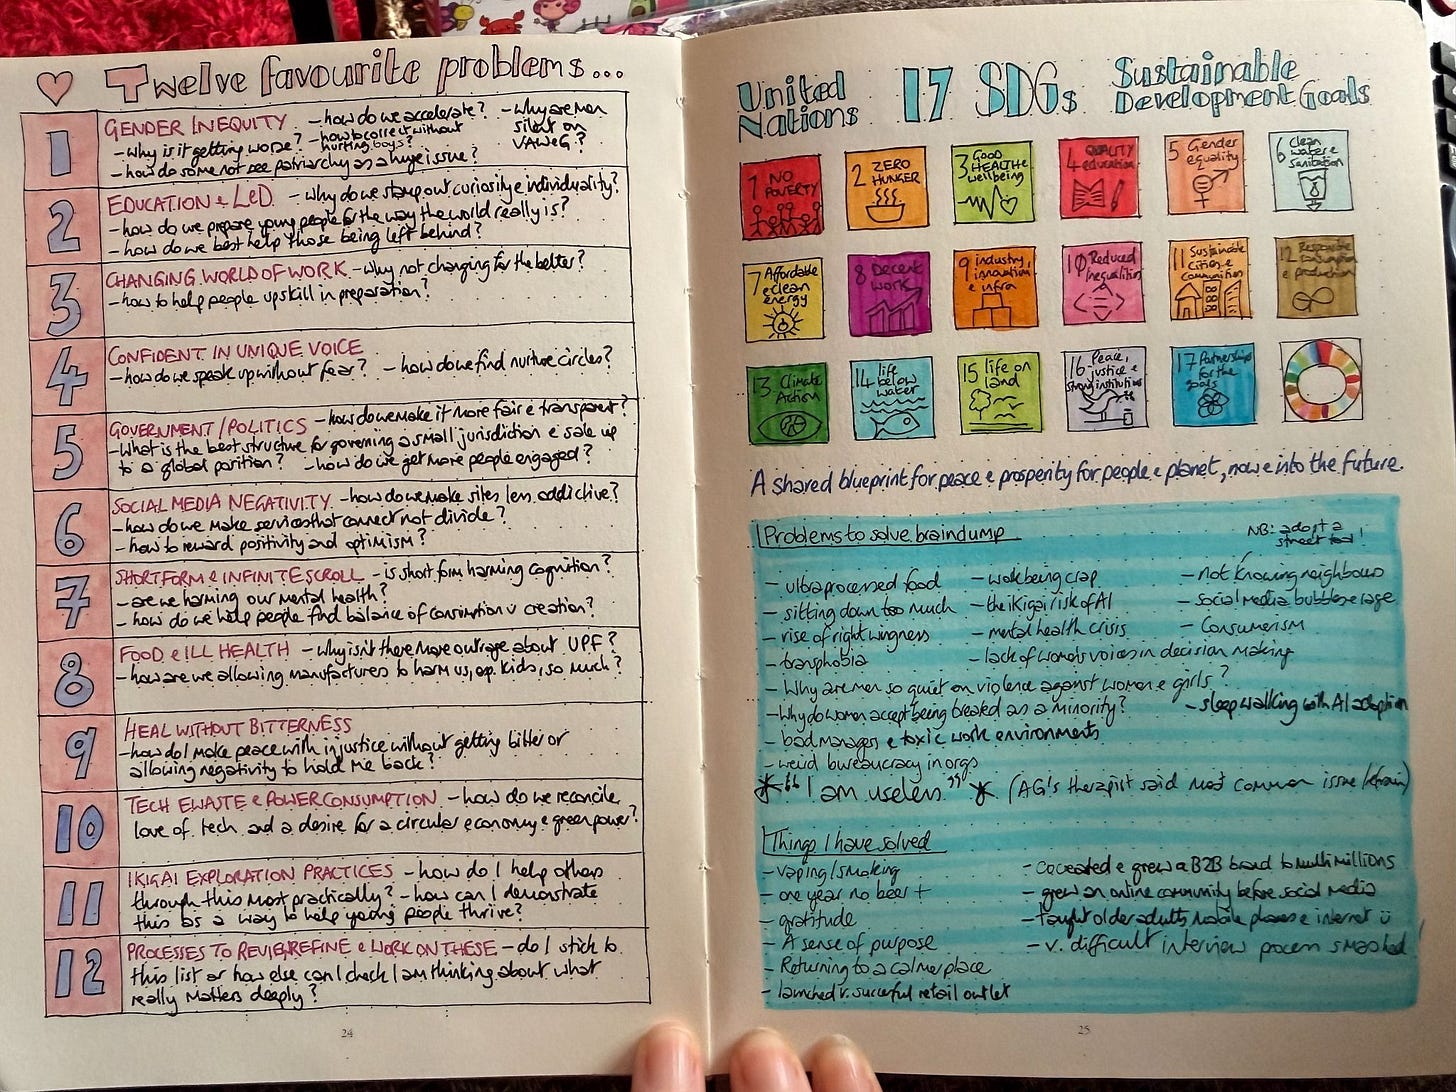 Twelve favourite problems...
1
GENDER INEQUITY - how do we accelerate? - why are men
- why is it getting worse? - how to correct without silent on
hurting boys? VAW&G?
- how do some not see patriarchy as a huge issue?
2
EDUCATION & L&D. - why do we stamp out curiosity & individuality?
- how do we prepare young people for the way the world really is?
- how do we best help those being left behind?
3
CHANGING WORLD OF WORK - why not changing for the better?
- how to help people upskill in preparation?
4
CONFIDENT IN UNIQUE VOICE
- how do we speak up without fear? - how do we find nurture circles?
5
GOVERNMENT/POLITICS - how do we make it more fair & transparent?
- What is the best structure for governing a small jurisdiction & scale up
to a global position? - how do we get more people engaged?
6
SOCIAL MEDIA NEGATIVITY - how do we make sites less addictive?
- how do we make services that connect not divide?
- how to reward positivity and optimism?
7
SHORT FORM & INFINITE SCROLL - is short form harming cognition?
- are we harming our mental health?
- how do we help people find balance of consumption v creation?
8
FOOD & ILL HEALTH - why isn't there more outrage about UPF?
- how are we allowing manufacturers to harm us, esp. kids, so much?
9
HEAL WITHOUT BITTERNESS
- how do I make peace with injustice without getting bitter or
allowing negativity to hold me back?
10
TECH EWASTE & POWER CONSUMPTION - how do we reconcile
love of tech and a desire for a circular economy & green power?
11
IKIGAI EXPLORATION PRACTICES - how do I help others
through this most practically? - how can I demonstrate
this as a way to help young people thrive?
12
PROCESSES TO REVIEW, REFINE & WORK ON THESE - do I stick to
this list or how else can I check I am thinking about what
really matters deeply?
24
United Nations 17 SDGs Sustainable
Development Goals
1 NO POVERTY
2 ZERO HUNGER
3 Good HEALTH & wellbeing
4 QUALITY education
5 Gender equality
6 Clean water & sanitation
7 Affordable & clean energy
8 Decent work
9 industry, innovation & infra
10 Reduced inequalities
11 Sustainable cities & communities
12 Responsible consumption & production
13 Climate Action
14 life below water
15 life on land
16 Peace, justice & strong institutions
17 Partnerships for the goals
A shared blueprint for peace & prosperity for people & planet, now & into the future.
Problems to solve braindump NB: adopt a
street
- ultraprocessed food - work being crap - not knowing neighbours
- sitting down too much - the ikigai risk of AI - social media bubbles & rage
- rise of right wingness - mental health crisis - Consumerism
- transphobia - lack of women's voices in decision making
- Why are men so quiet on violence against women & girls?
- Why do women accept being treated as a minority? - sleepwalking with AI adoption
- bad managers & toxic work environments
- weird bureaucracy in orgs
* "I am useless" * (AG's therapist said most common issue/refrain)
Things I have solved
- vaping/smoking - cocreated & grew a B2B brand to multi millions
- one year no beer + - grew an online community before social media
- gratitude - taught older adults mobile phones & internet
- A sense of purpose - v. difficult interview process smashed
- Returning to a calmer place
- launched v. successful retail outlet
25